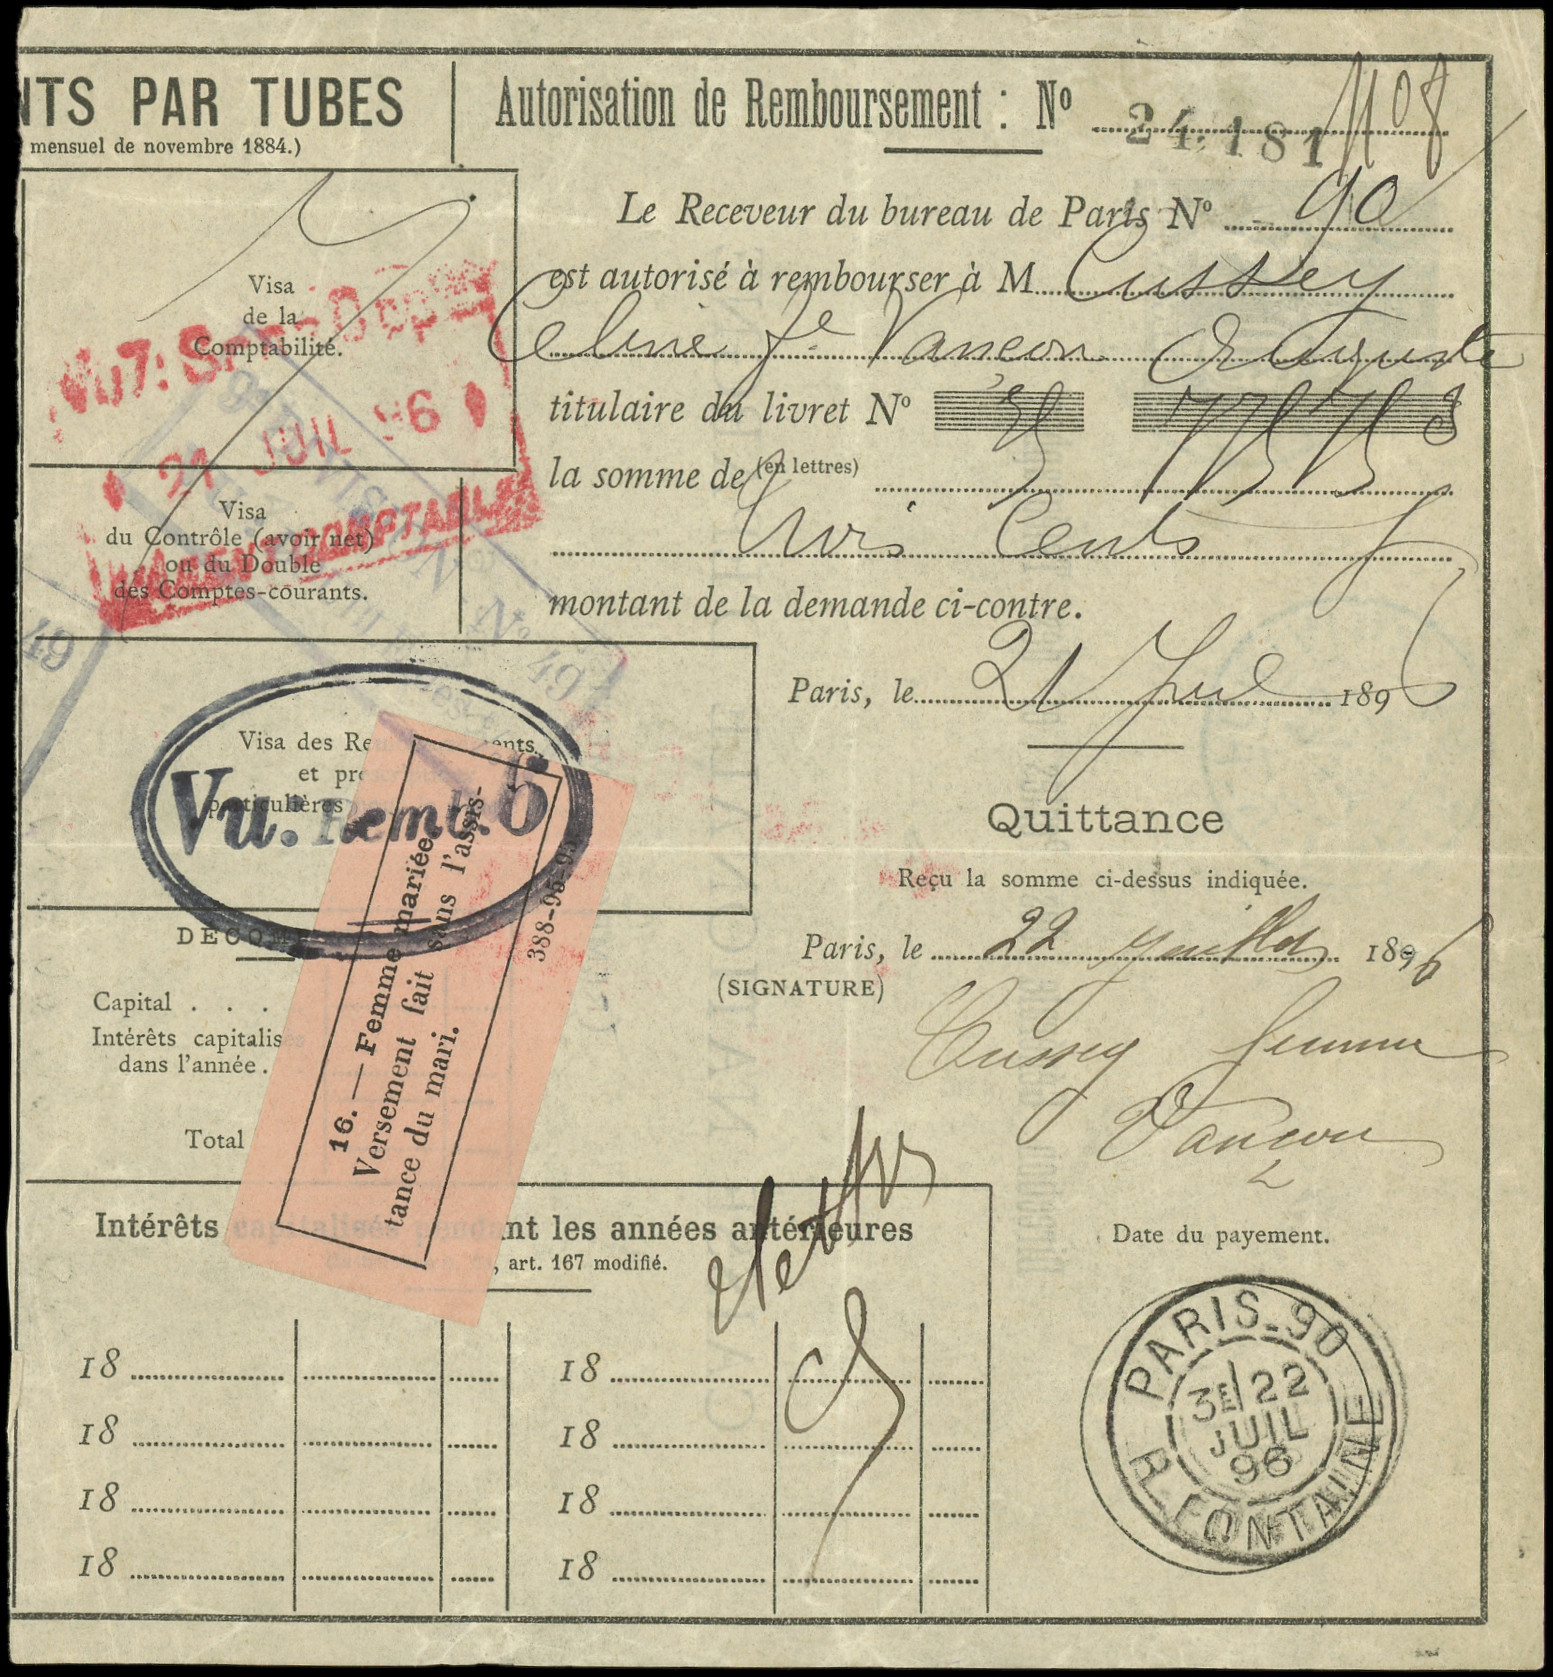 NTS PAR TUBES
mensuel de novembre 1884.)
Autorisation de Remboursement : Nº 24.181
1108
Le Receveur du bureau de Paris Nº 90
est autorisé à rembourser à M Cussey
Celine fe Vancon Auguste
titulaire du livret Nº
la somme de (en lettres)
Trois Cents f
montant de la demande ci-contre.
Paris, le 21 Juil 1896
Quittance
Reçu la somme ci-dessus indiquée.
Paris, le 22 Juillet 1896
(SIGNATURE)
Cussey femme
Vancon
Date du payement.
PARIS-90
3E 22
JUIL
96
R. FONTAINE
Visa
de la
Comptabilité.
21 JUIL 96
L'AGENT COMPTABLE
Visa
du Contrôle (avoir net)
ou du Double
des Comptes-courants.
Nº 49
49
Visa des Re ents
et pr
particulières
Vu. Remb. 6
16. — Femme mariée.
Versement fait sans l'assis-
tance du mari.
388-95-95
DÉCOM
Capital . . .
Intérêts capitalis
dans l'année.
Total
Intérêts capitalisés pendant les années antérieures
, art. 167 modifié.
18 18
18 18
18 18
18 18